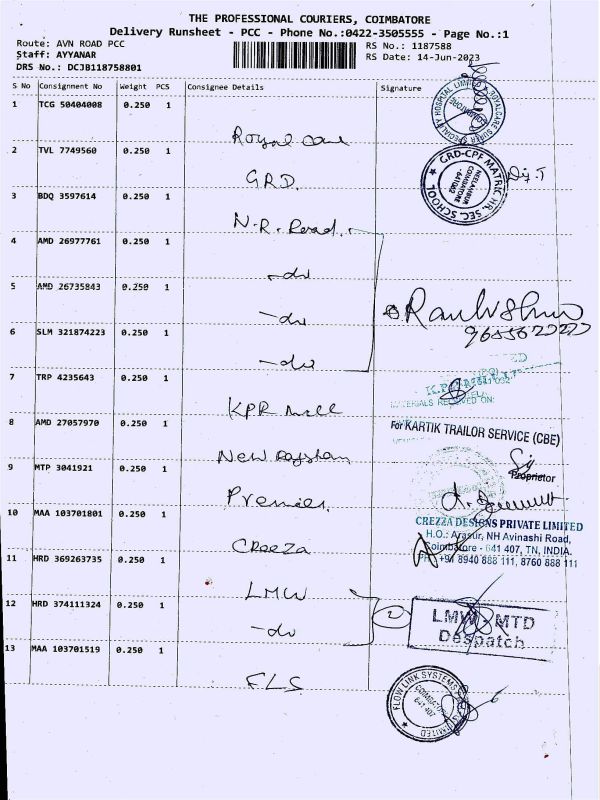 THE PROFESSIONAL COURIERS, COIMBATORE
Delivery Runsheet - PCC - Phone No.:0422-3505555 - Page No.:1
Route: AVN ROAD PCC
RS No.: 1187588
Staff: AYYANAR
RS Date: 14-Jun-2023
DRS No.: DCJB118758801
S No Consignment No Weight PCS Consignee Details Signature
1 TCG 50404008 0.250 1
Royal care
2 TVL 7749560 0.250 1
GRD.
GRD-CPF MATRIC HR. SEC. SCHOOL
NEELAMBUR
COIMBATORE
-641062
3 BDQ 3597614 0.250 1
N.R. Road.
4 AMD 26977761 0.250 1
-do
5 AMD 26735843 0.250 1
-do
6 SLM 321874223 0.250 1
-do
7 TRP 4235643 0.250 1
KPR Mill
MATERIALS RECEIVED ON:
8 AMD 27057970 0.250 1
For KARTIK TRAILOR SERVICE (CBE)
New Rajasthan
9 MTP 3041921 0.250 1
Proprietor
Premier.
10 MAA 103701801 0.250 1
CREZZA DESIGNS PRIVATE LIMITED
H.O.: Arasur, NH Avinashi Road,
Coimbatore - 641 407, TN, INDIA.
PH : +91 8940 888 111, 8760 888 111
Creeza
11 HRD 369263735 0.250 1
LMW
12 HRD 374111324 0.250 1
-do
2
LMW - MTD
Despatch
13 MAA 103701519 0.250 1
FLS
FLOW LINK SYSTEMS
COIMBATORE
641 407
LIMITED